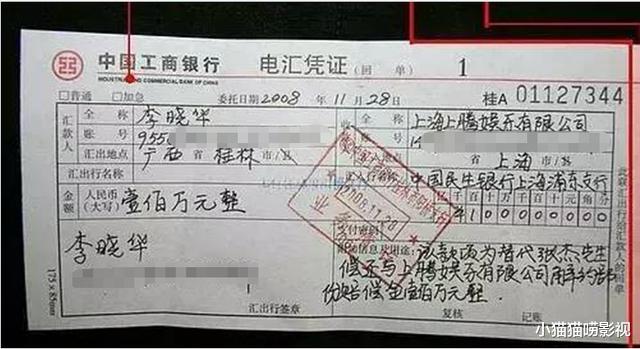 中国工商银行 电汇凭证（回单） 1
INDUSTRIAL AND COMMERCIAL BANK OF CHINA
□普通 □加急 委托日期2008年11月28日 桂A 01127344
汇款人 全称 李晓华 全称 上海上腾娱乐有限公司
账号 9550 账号 15
汇出地点 广西省桂林市/县 上海市/县
汇出行名称 汇入行名称 中国民生银行上海浦东支行
金额 人民币（大写） 壹佰万元整 千百十万千百十元角分
¥10
2008.11.28
业务
支付密码
李晓华 附加信息及用途：该款项为替代张杰先生
偿还与上腾娱乐有限公司解约部
份赔偿金壹佰万元整.
汇出行签章 复核 记账
175×85mm
此联汇出行给汇款人的回单
小猫猫唠影视